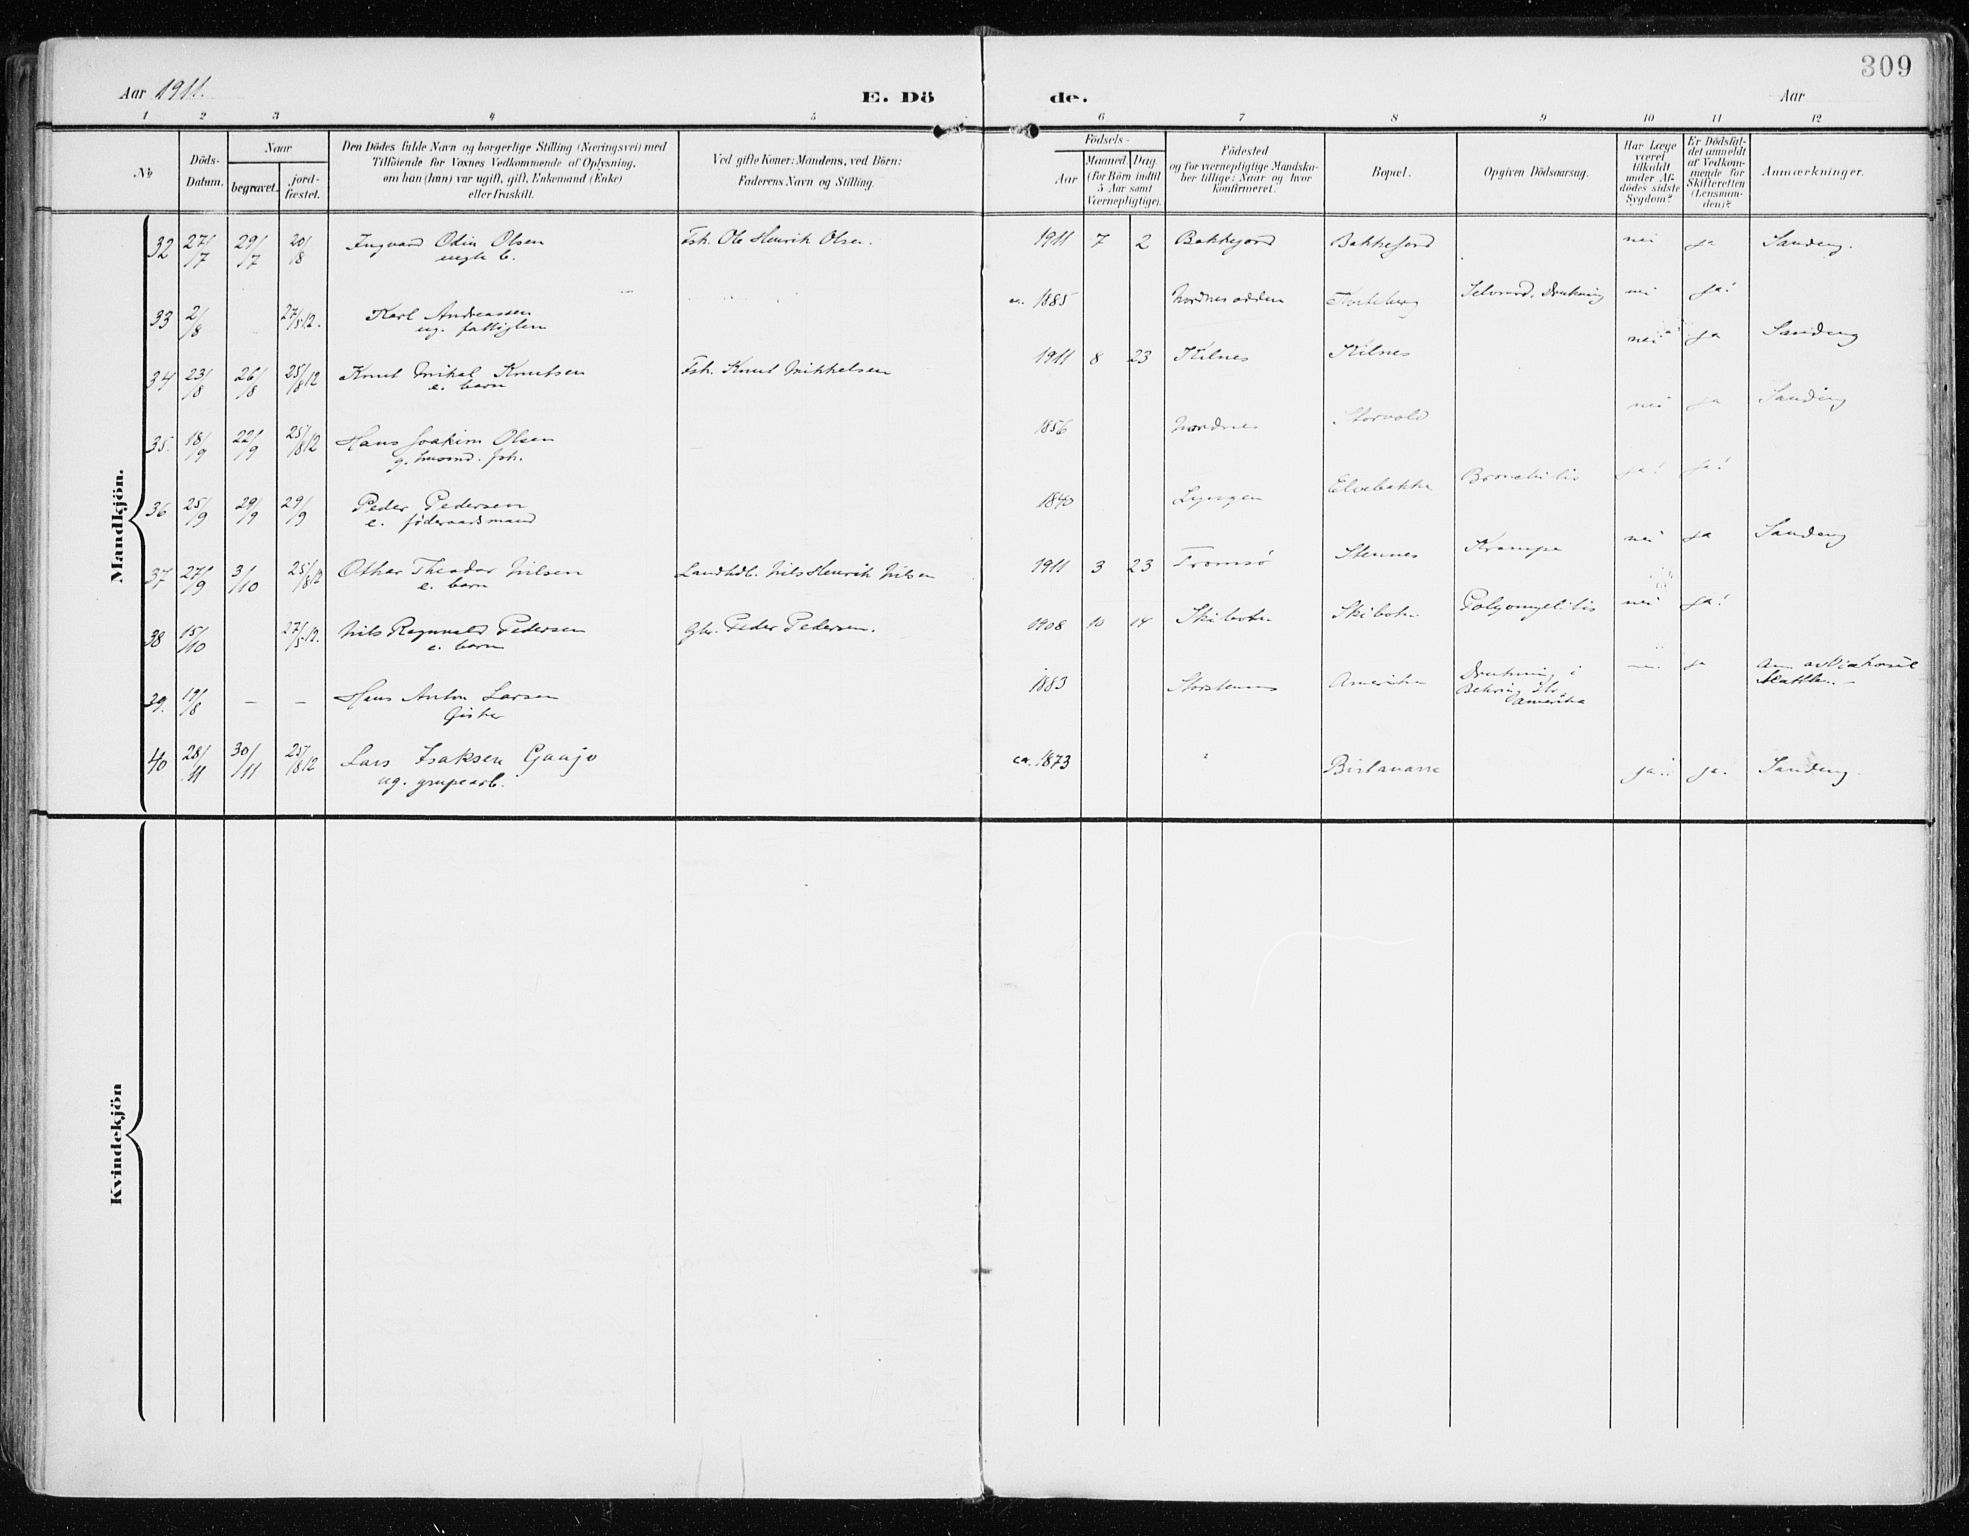 309
Aar 1911.
E. Dö de.
Aar
1 2 3 4 5 6 7 8 9 10 11 12
No
Döds-Datum.
Naar
begravet.
jord-fæstet.
Den Dödes fulde Navn og borgerlige Stilling (Næringsvei) med
Tilföiende for Voxnes Vedkommende af Oplysning,
om han (hun) var ugift, gift, Enkemand (Enke)
eller fraskilt.
Ved gifte Koner: Mandens, ved Börn:
Faderens Navn og Stilling.
Födsels-
Aar
Maaned. Dag.
(for Börn indtil
5 Aar samt
Værnepligtige).
Födested
og for værnepligtige Mandska-
ber tillige: Naar og hvor
konfirmeret.
Bopæl.
Opgiven Dödsaarsag.
Har Læge
været
tilkaldt
under Af-
dödes sidste
Sygdom?
Er Dödsfal-
det anmeldt
af Vedkom-
mende for
Skifteretten
(Lensman-
den)?
Anmærkninger.
Mandkjön.
32 27/7 29/7 20/8 Ingvard Odin Olsen Fsk. Ole Henrik Olsen. 1911 7 2 Bakkejord Bakkejord nei ja Sandeng.
33 2/8 27/5 12. Karl Andreassen ca. 1885 Nordnesodden Selvmord. Drukning nei ja!
ug. fattiglem
34 23/8 26/8 25/8 12 Knut Mikal Knutsen Fsk. Knut Mikkelsen 1911 8 23 Kilnes Kilnes nei ja Sandeng
e. barn
35. 18/9 22/9 25/8 12 Hans Joakim Olsen 1856 Nordnes Storvold nei ja Sandeng
g. husmd. fsk.
36 25/9 29/9 29/9 Peder Pedersen 1840 Lyngen Elvebakke Bronchitis ja! ja!
e. föderaadsmand
37 27/9 3/10 25/8 12 Othar Theodor Nilsen Landhdl. Nils Henrik Nilsen 1911 3 23 Tromsø Stennes Krampe nei ja Sandeng
e. barn
38 15/10 27/5 12. Nils Ragnvald Pedersen Gbr. Peder Pedersen. 1908 10 14 Skibotn Skibotn Polyomyelitis nei ja!
e. barn
39. 19/8 – – Hans Anton Larsen 1883 Storstennes Amerika Drukning i ja
Behring Str.
Amerika
40 28/11 30/11 25/8 12 Lars Isaksen Gaajo ca. 1873 Birtavarre ja! ja. Sandeng.
ug. grupearb.
Kvindekjön